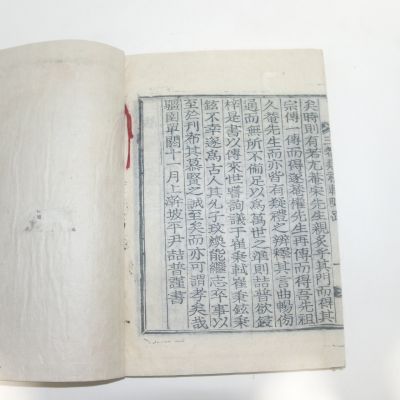 矣時則有若尤菴宋先生親炙于其門而得其
宗傳一傳而得遂菴權先生再傳而得吾先祖
久菴先生而亦皆有疑禮之辨釋其言曲暢傍
通而無所不備足以爲萬世之準則詰普欲鋟
梓是書以傳來世嘗詢議于崔秉軾崔秉鉉秉
鉉不幸遽爲古人其允子玟煥能繼志卒事以
至於刊布其慕賢之誠至矣而亦可謂孝矣哉
彊圉單閼十一月上澣坡平尹喆普謹書